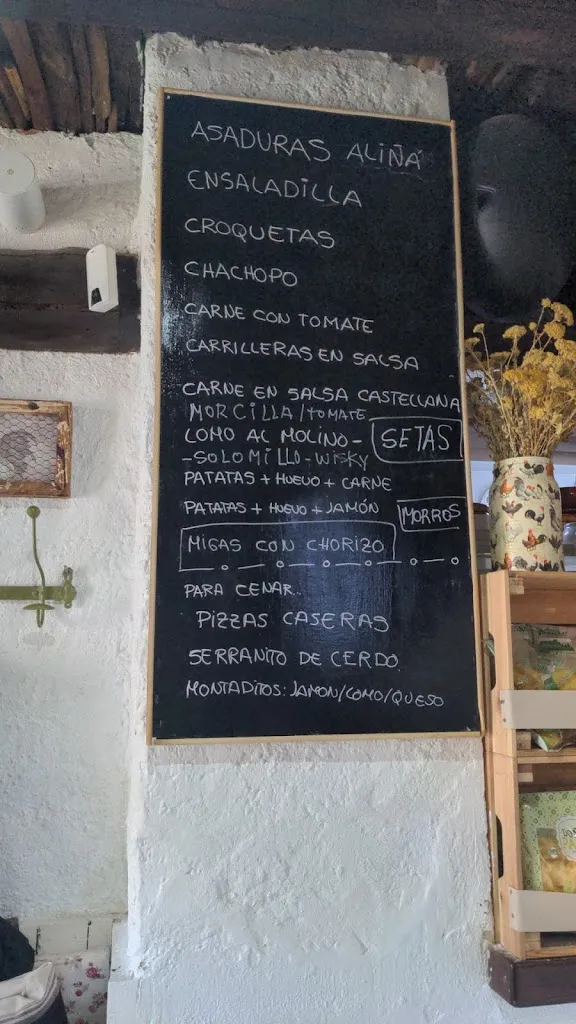 ASADURAS ALIÑÁ
ENSALADILLA
CROQUETAS
CHACHOPO
CARNE CON TOMATE
CARRILLERAS EN SALSA
CARNE EN SALSA CASTELLANA
MORCILLA/TOMATE
LOMO AL MOLINO- SETAS
-SOLOMILLO-WISKY
PATATAS + HUEVO + CARNE
PATATAS + HUEVO + JAMÓN MORROS
MIGAS CON CHORIZO
PARA CENAR..
PIZZAS CASERAS
SERRANITO DE CERDO.
MONTADITOS: JAMON/LOMO/QUESO